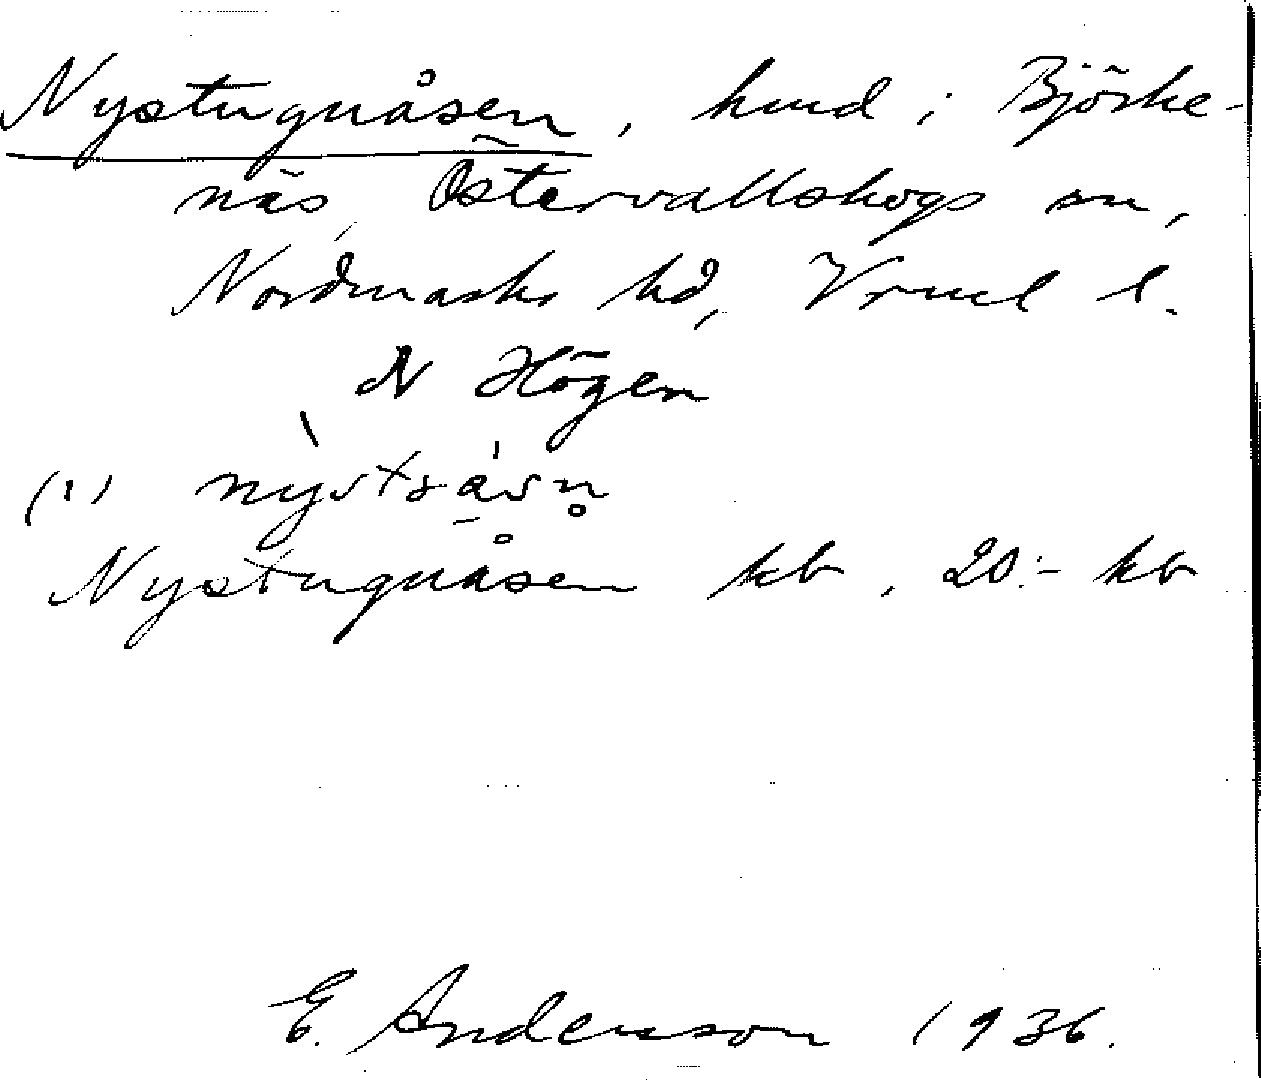 Nystuguåsen, hmd i Björke-
näs, Östervallskogs sn,
Nordmarks hd, Vrml l.
N Högen
(1)
Nystuguåsen kb, 20:- kb
E. Andersson 1936.